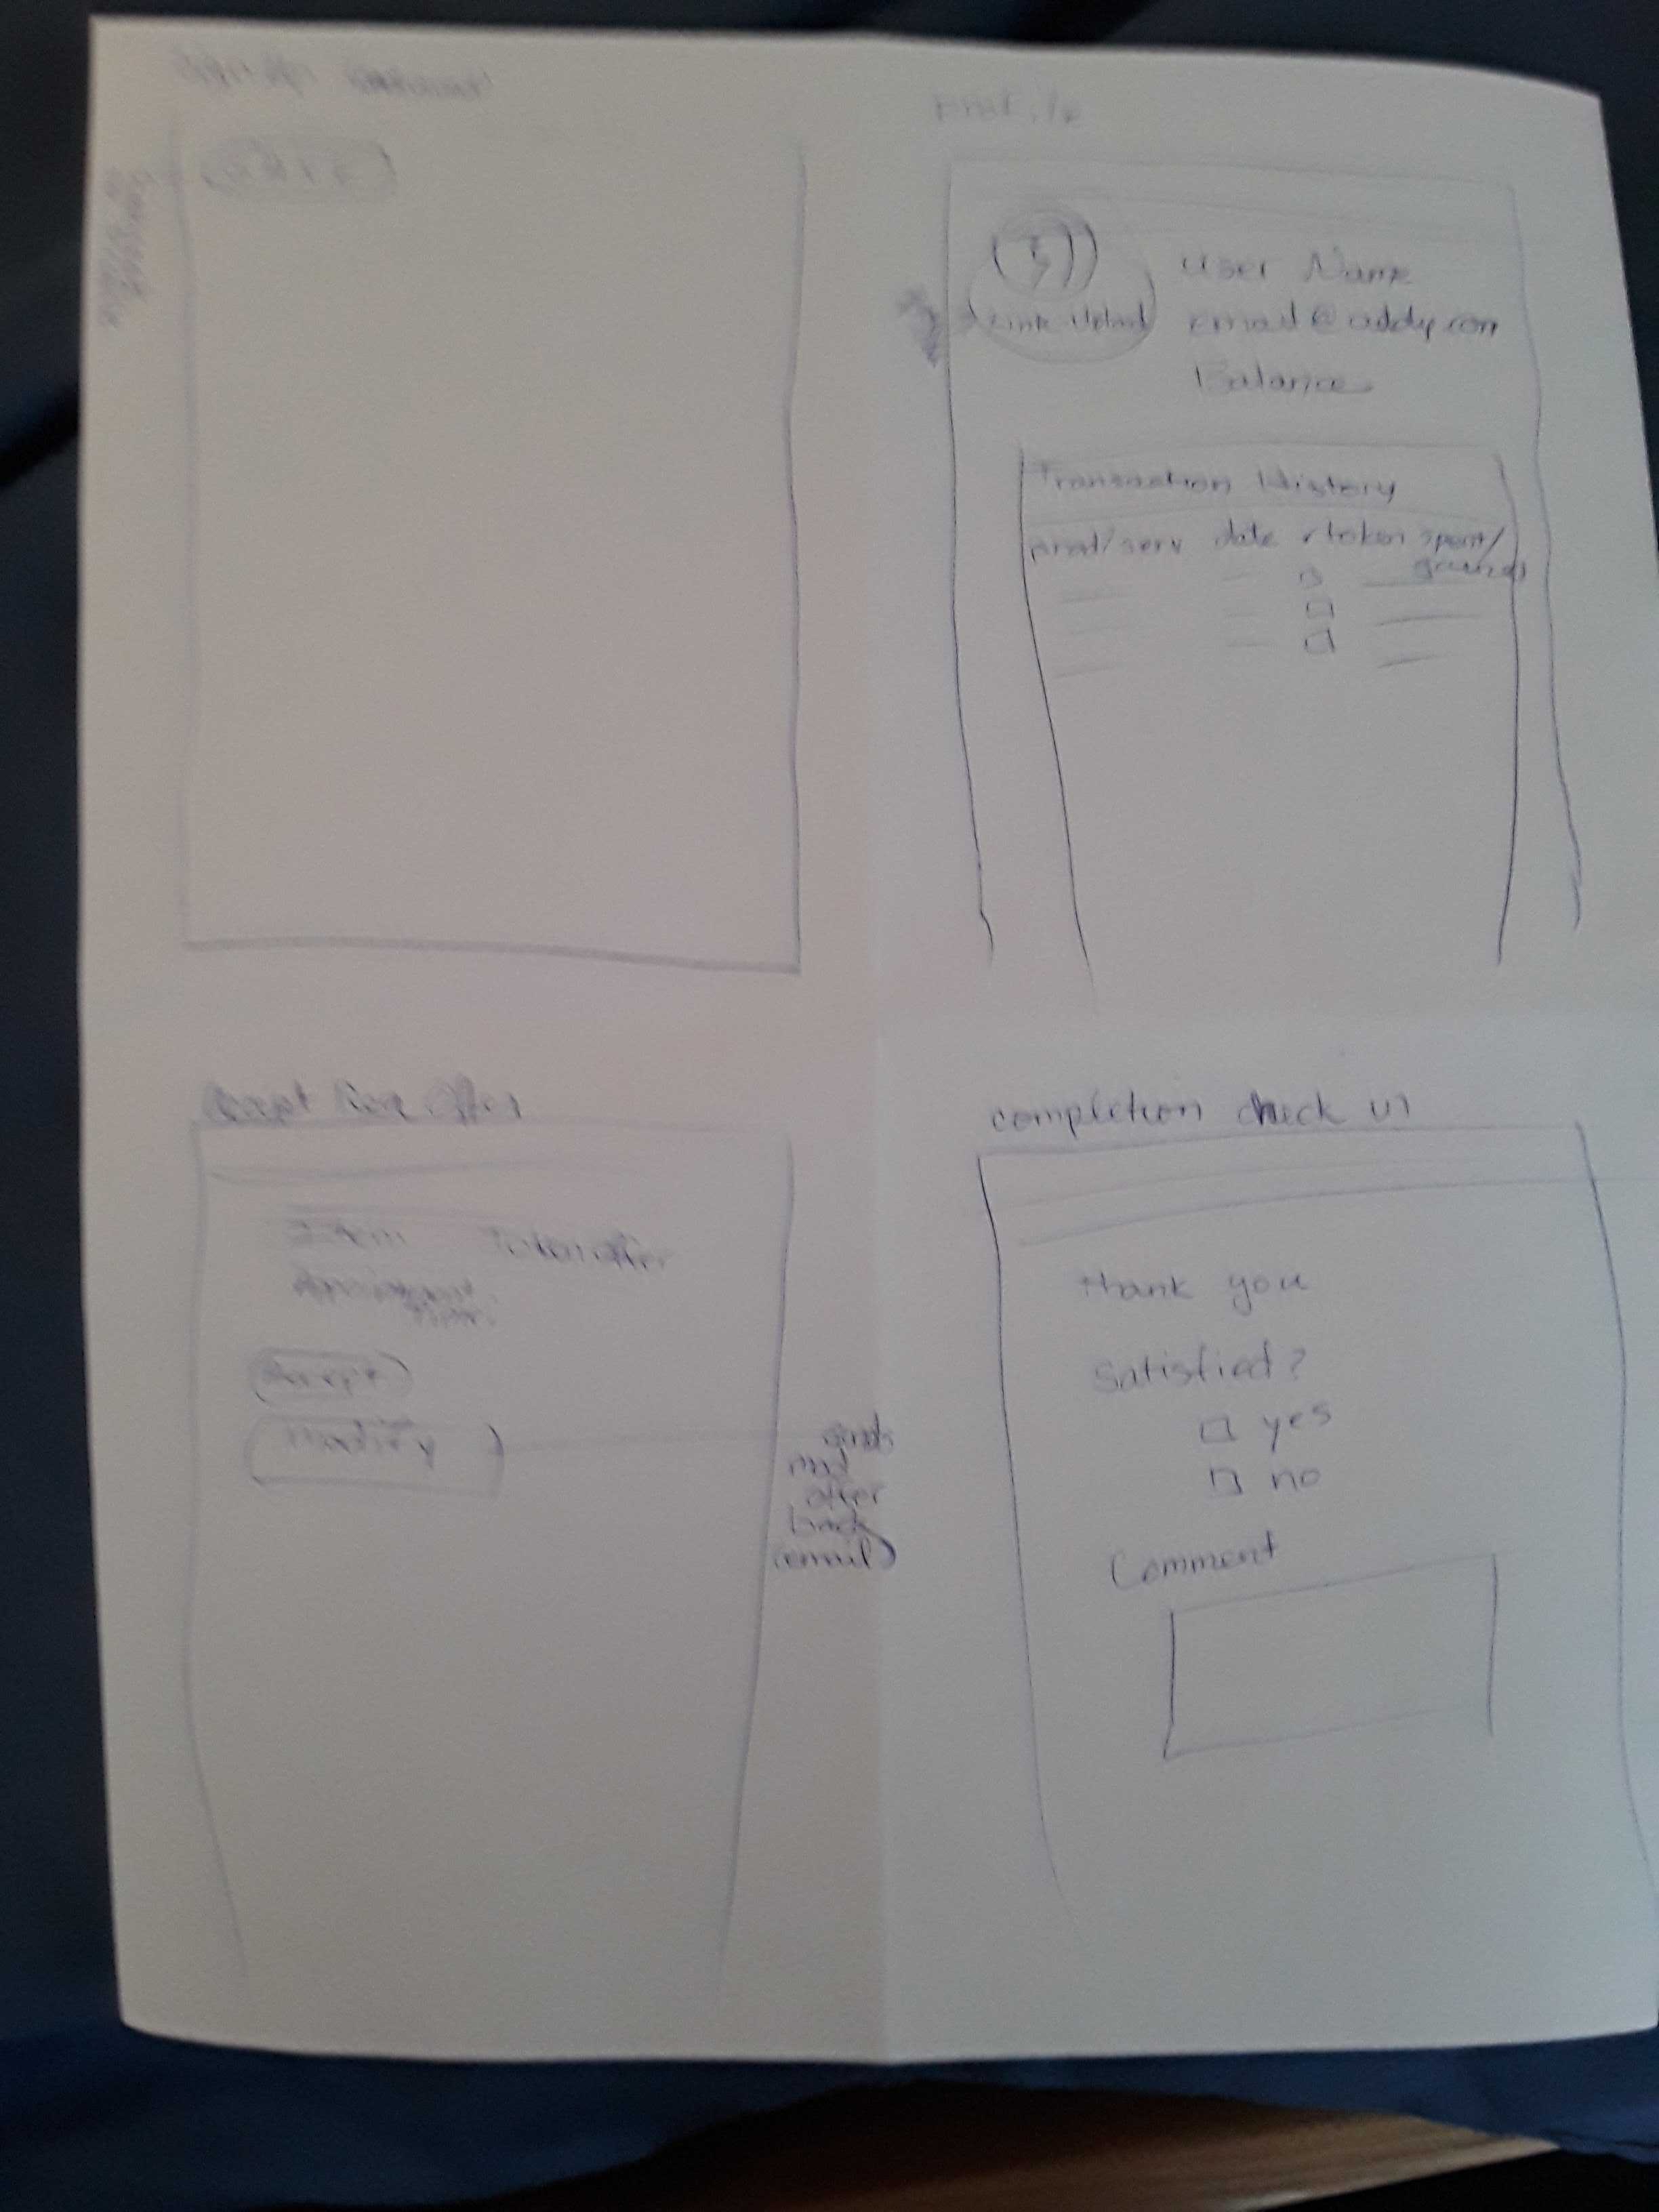 Sign Up
Profile
User Name
email@addy.com
Balance
Transaction History
prod/serv date token spent/
gained
Accept Offer
Item Token offer
Accept
Modify
sends
mod
offer
back
(email)
completion check in
thank you
Satisfied?
yes
no
Comment